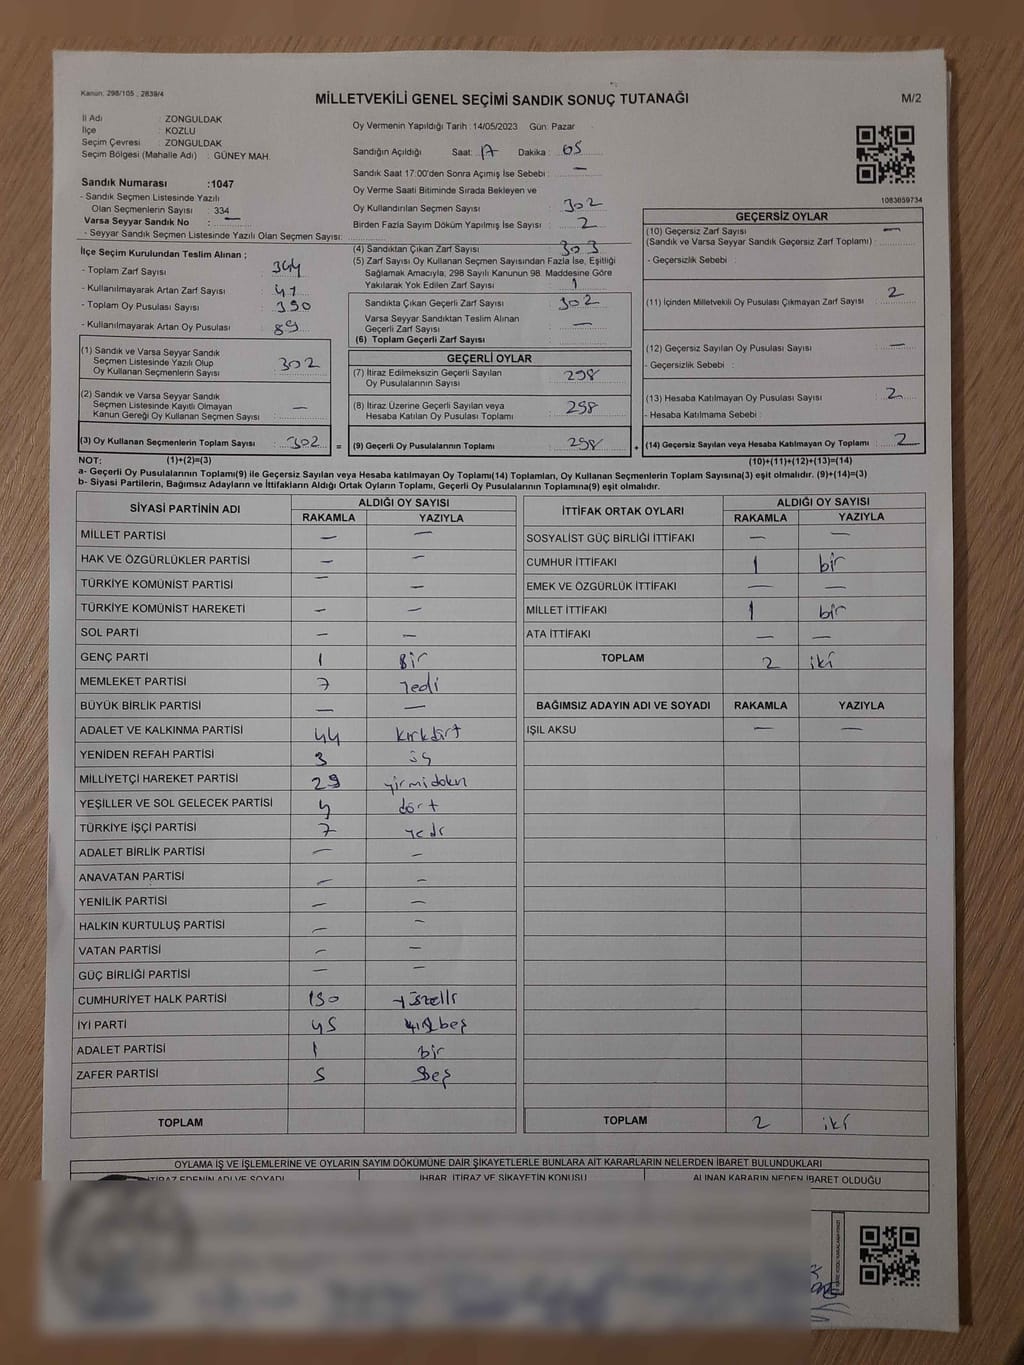 Kanun: 298/105 , 2839/4
MİLLETVEKİLİ GENEL SEÇİMİ SANDIK SONUÇ TUTANAĞI
M/2
İl Adı : ZONGULDAK
İlçe : KOZLU
Seçim Çevresi : ZONGULDAK
Seçim Bölgesi (Mahalle Adı) : GÜNEY MAH.
Sandık Numarası :1047
- Sandık Seçmen Listesinde Yazılı
Olan Seçmenlerin Sayısı : 334
Varsa Seyyar Sandık No : —
- Seyyar Sandık Seçmen Listesinde Yazılı Olan Seçmen Sayısı:
İlçe Seçim Kurulundan Teslim Alınan ;
- Toplam Zarf Sayısı : 344
- Kullanılmayarak Artan Zarf Sayısı : 41
- Toplam Oy Pusulası Sayısı : 390
- Kullanılmayarak Artan Oy Pusulası : 89
(1) Sandık ve Varsa Seyyar Sandık
Seçmen Listesinde Yazılı Olup
Oy Kullanan Seçmenlerin Sayısı : 302
(2) Sandık ve Varsa Seyyar Sandık
Seçmen Listesinde Kayıtlı Olmayan
Kanun Gereği Oy Kullanan Seçmen Sayısı : —
(3) Oy Kullanan Seçmenlerin Toplam Sayısı : 302 =
Oy Vermenin Yapıldığı Tarih : 14/05/2023 Gün: Pazar
Sandığın Açıldığı Saat: 17 Dakika : 05
Sandık Saat 17:00'den Sonra Açımış İse Sebebi : —
Oy Verme Saati Bitiminde Sırada Bekleyen ve
Oy Kullandırılan Seçmen Sayısı : 302
Birden Fazla Sayım Döküm Yapılmış İse Sayısı : 2
(4) Sandıktan Çıkan Zarf Sayısı : 303
(5) Zarf Sayısı Oy Kullanan Seçmen Sayısından Fazla İse, Eşitliği
Sağlamak Amacıyla, 298 Sayılı Kanunun 98. Maddesine Göre
Yakılarak Yok Edilen Zarf Sayısı : 1
Sandıkta Çıkan Geçerli Zarf Sayısı : 302
Varsa Seyyar Sandıktan Teslim Alınan
Geçerli Zarf Sayısı : —
(6) Toplam Geçerli Zarf Sayısı :
GEÇERLİ OYLAR
(7) İtiraz Edilmeksizin Geçerli Sayılan
Oy Pusulalarının Sayısı : 298
(8) İtiraz Üzerine Geçerli Sayılan veya
Hesaba Katılan Oy Pusulaları Toplamı : 298
(9) Geçerli Oy Pusulalarının Toplamı : 298 +
1083859734
GEÇERSİZ OYLAR
(10) Geçersiz Zarf Sayısı : —
(Sandık ve Varsa Seyyar Sandık Geçersiz Zarf Toplamı) :
- Geçersizlik Sebebi :
(11) İçinden Milletvekili Oy Pusulası Çıkmayan Zarf Sayısı : 2
(12) Geçersiz Sayılan Oy Pusulası Sayısı : —
- Geçersizlik Sebebi :
(13) Hesaba Katılmayan Oy Pusulası Sayısı : 2
- Hesaba Katılmama Sebebi :
(14) Geçersiz Sayılan veya Hesaba Katılmayan Oy Toplamı : 2
NOT: (1)+(2)=(3) (10)+(11)+(12)+(13)=(14)
a- Geçerli Oy Pusulalarının Toplamı(9) ile Geçersiz Sayılan veya Hesaba katılmayan Oy Toplamı(14) Toplamları, Oy Kullanan Seçmenlerin Toplam Sayısına(3) eşit olmalıdır. (9)+(14)=(3)
b- Siyasi Partilerin, Bağımsız Adayların ve İttifakların Aldığı Ortak Oyların Toplamı, Geçerli Oy Pusulalarının Toplamına(9) eşit olmalıdır.
SİYASİ PARTİNİN ADI ALDIĞI OY SAYISI
RAKAMLA YAZIYLA
MİLLET PARTİSİ — —
HAK VE ÖZGÜRLÜKLER PARTİSİ — —
TÜRKİYE KOMÜNİST PARTİSİ — —
TÜRKİYE KOMÜNİST HAREKETİ — —
SOL PARTİ — —
GENÇ PARTİ 1 Bir
MEMLEKET PARTİSİ 7 Yedi
BÜYÜK BİRLİK PARTİSİ — —
ADALET VE KALKINMA PARTİSİ 44 kırkdört
YENİDEN REFAH PARTİSİ 3 üç
MİLLİYETÇİ HAREKET PARTİSİ 29 yirmidoku
YEŞİLLER VE SOL GELECEK PARTİSİ 4 dört
TÜRKİYE İŞÇİ PARTİSİ 7 yedi
ADALET BİRLİK PARTİSİ — —
ANAVATAN PARTİSİ — —
YENİLİK PARTİSİ — —
HALKIN KURTULUŞ PARTİSİ — —
VATAN PARTİSİ — —
GÜÇ BİRLİĞİ PARTİSİ — —
CUMHURİYET HALK PARTİSİ 150 yüzelli
İYİ PARTİ 45 kırkbeş
ADALET PARTİSİ 1 bir
ZAFER PARTİSİ 5 Beş
TOPLAM
İTTİFAK ORTAK OYLARI ALDIĞI OY SAYISI
RAKAMLA YAZIYLA
SOSYALİST GÜÇ BİRLİĞİ İTTİFAKI — —
CUMHUR İTTİFAKI 1 bir
EMEK VE ÖZGÜRLÜK İTTİFAKI — —
MİLLET İTTİFAKI 1 bir
ATA İTTİFAKI — —
TOPLAM 2 iki
BAĞIMSIZ ADAYIN ADI VE SOYADI RAKAMLA YAZIYLA
IŞIL AKSU — —
TOPLAM 2 iki
OYLAMA İŞ VE İŞLEMLERİNE VE OYLARIN SAYIM DÖKÜMÜNE DAİR ŞİKAYETLERLE BUNLARA AİT KARARLARIN NELERDEN İBARET BULUNDUKLARI
İTİRAZ EDENİN ADI VE SOYADI İHBAR, İTİRAZ VE ŞİKAYETİN KONUSU ALINAN KARARIN NEDEN İBARET OLDUĞU